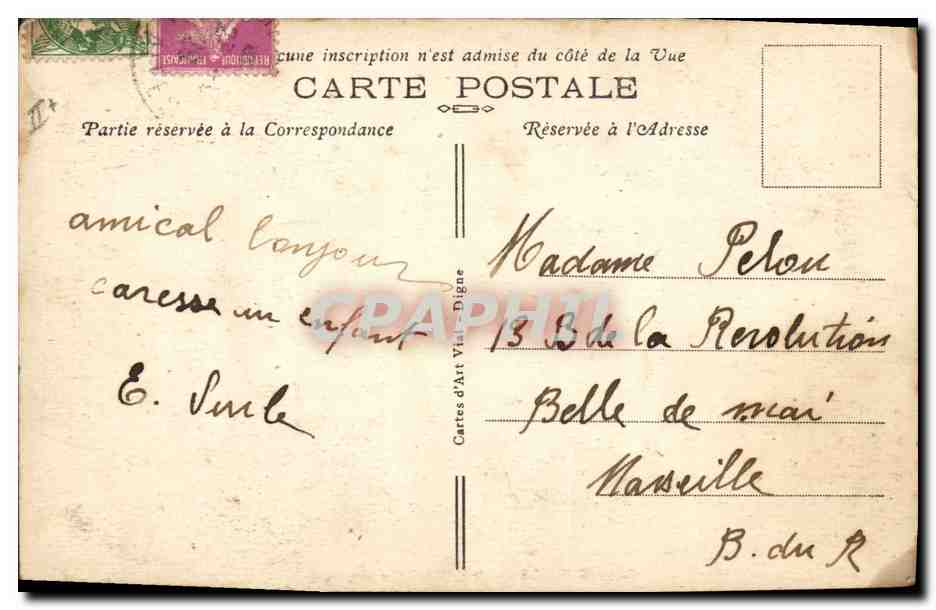 cune inscription n'est admise du côté de la Vue
CARTE POSTALE
Partie réservée à la Correspondance
Réservée à l'Adresse
REPUBLIQUE FRANÇAISE
II+
amical bonjour
caresse un enfant
E.
Madame Pelou
13 B de la Revolution
Belle de mai
Marseille
B. du R
Cartes d'Art Vial - Digne
CPAPHIL